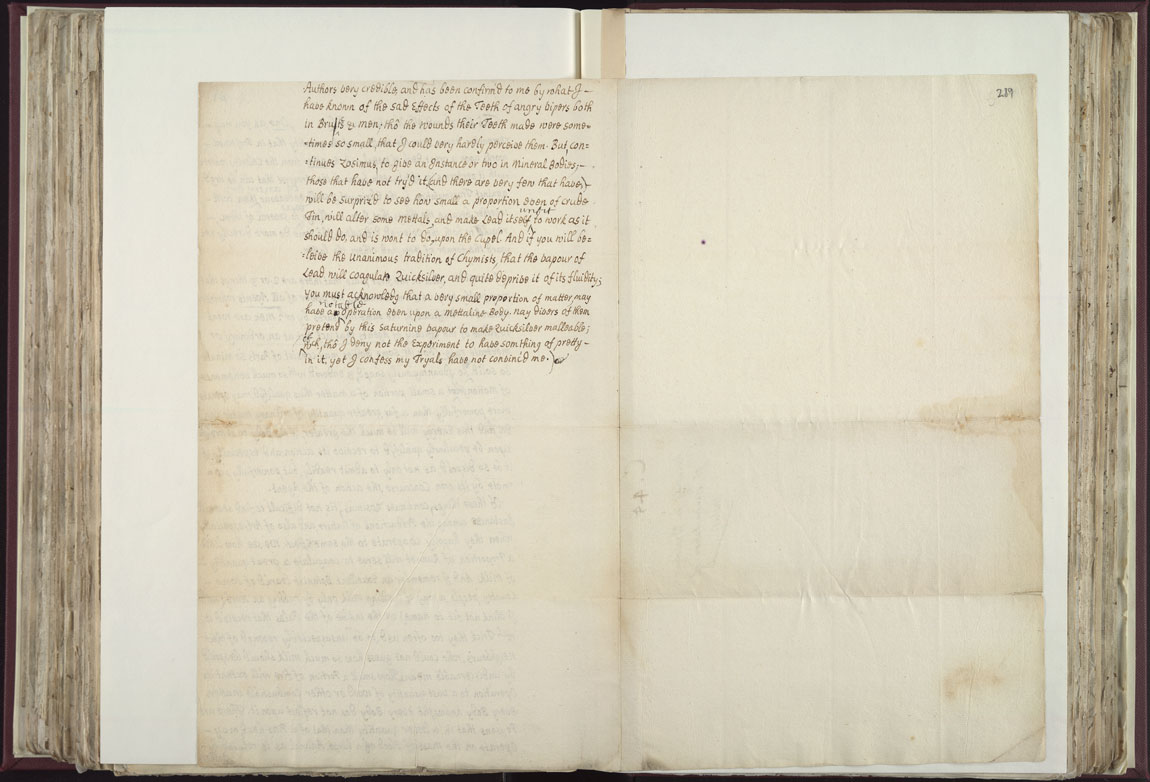 Authors very credible, and has been confirm'd to me by what I
have known of the sad Effects of the Teeth of angry vipers both
in Bruits & men, tho the wounds their Teeth made were some=
=times so small, that I could very hardly perceive them. But, con=
=tinues Zosimus, to give an Instance or two in Mineral Bodies;
those that have not try'd it, (and there are very few that have,)
will be surpriz'd to see how small a proportion even of crude
Tin, will alter some mettals, and make Lead itself unfit to work as it
should do, and is wont to do, upon the Cupel. And if you will be=
=leive the unanimous tradition of Chymists, that the vapour of
Lead will coagulate Quicksilver, and quite deprive it of its fluidity;
you must acknowledg that a very small proportion of matter, may
have a notable operation even upon a mettaline Body. nay divers of them
pretend by this saturnine vapour to make Quicksilver malleable;
tho I deny not the Experiment to have somthing of pretty
in it, yet I confess my Tryals have not convinc'd me.
289